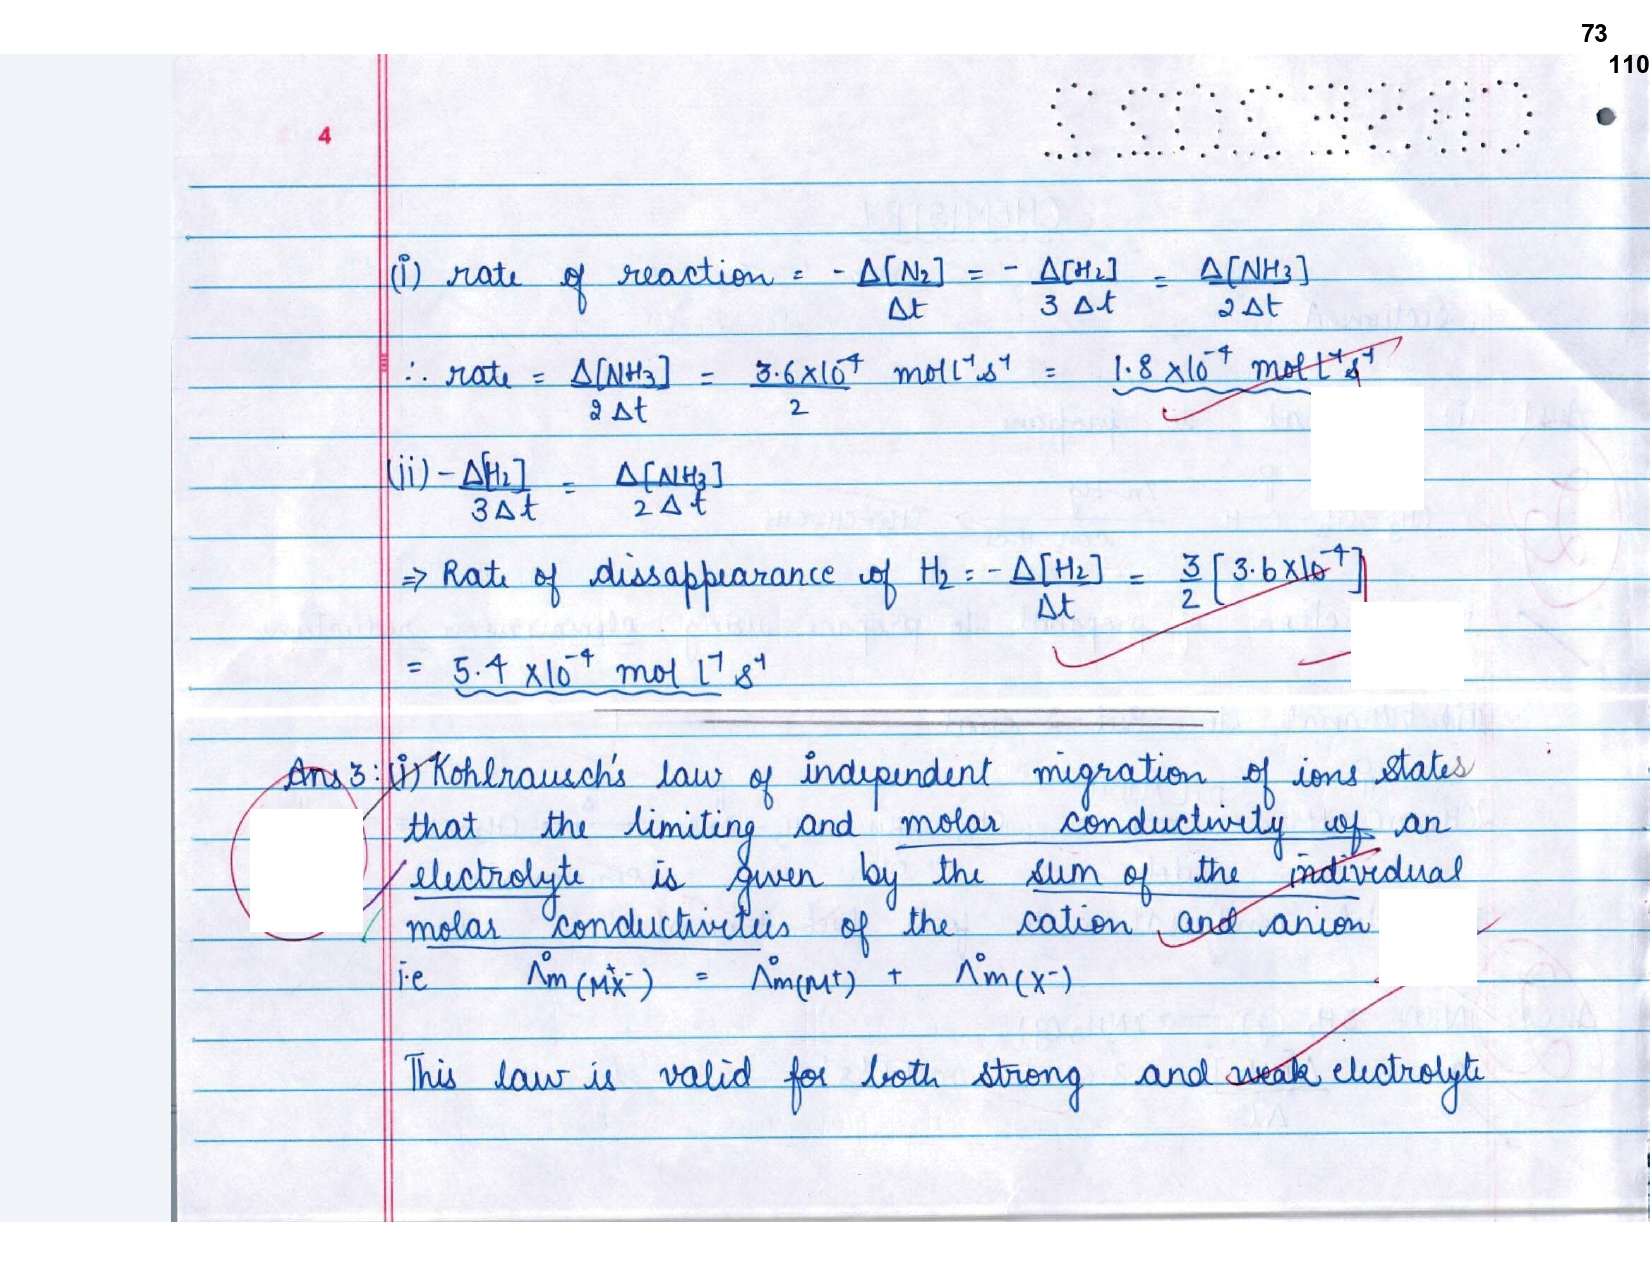 73
110
4
(i) rate of reaction = - Δ[N2]/Δt = - Δ[H2]/3Δt = Δ[NH3]/2Δt
∴ rate = Δ[NH3]/2Δt = 3.6×10⁻⁴/2 mol l⁻¹ s⁻¹ = 1.8 ×10⁻⁴ mol l⁻¹ s⁻¹
(ii) - Δ[H2]/3Δt = Δ[NH3]/2Δt
⇒ Rate of dissappearance of H2 = - Δ[H2]/Δt = 3/2 [3.6×10⁻⁴]
= 5.4 ×10⁻⁴ mol l⁻¹ s⁻¹
Ans 3: (i) Kohlrausch's law of independent migration of ions states
that the limiting and molar conductivity of an
electrolyte is given by the sum of the individual
molar conductiviteis of the cation and anion
i.e Λ°m (M⁺X⁻) = Λ°m(M⁺) + Λ°m(X⁻)
This law is valid for both strong and weak electrolyte